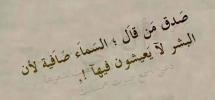 صَدق مَن قَال ؛ السمَاء صَافية لأن
البشر لآ يَعيشون فيهآ !.